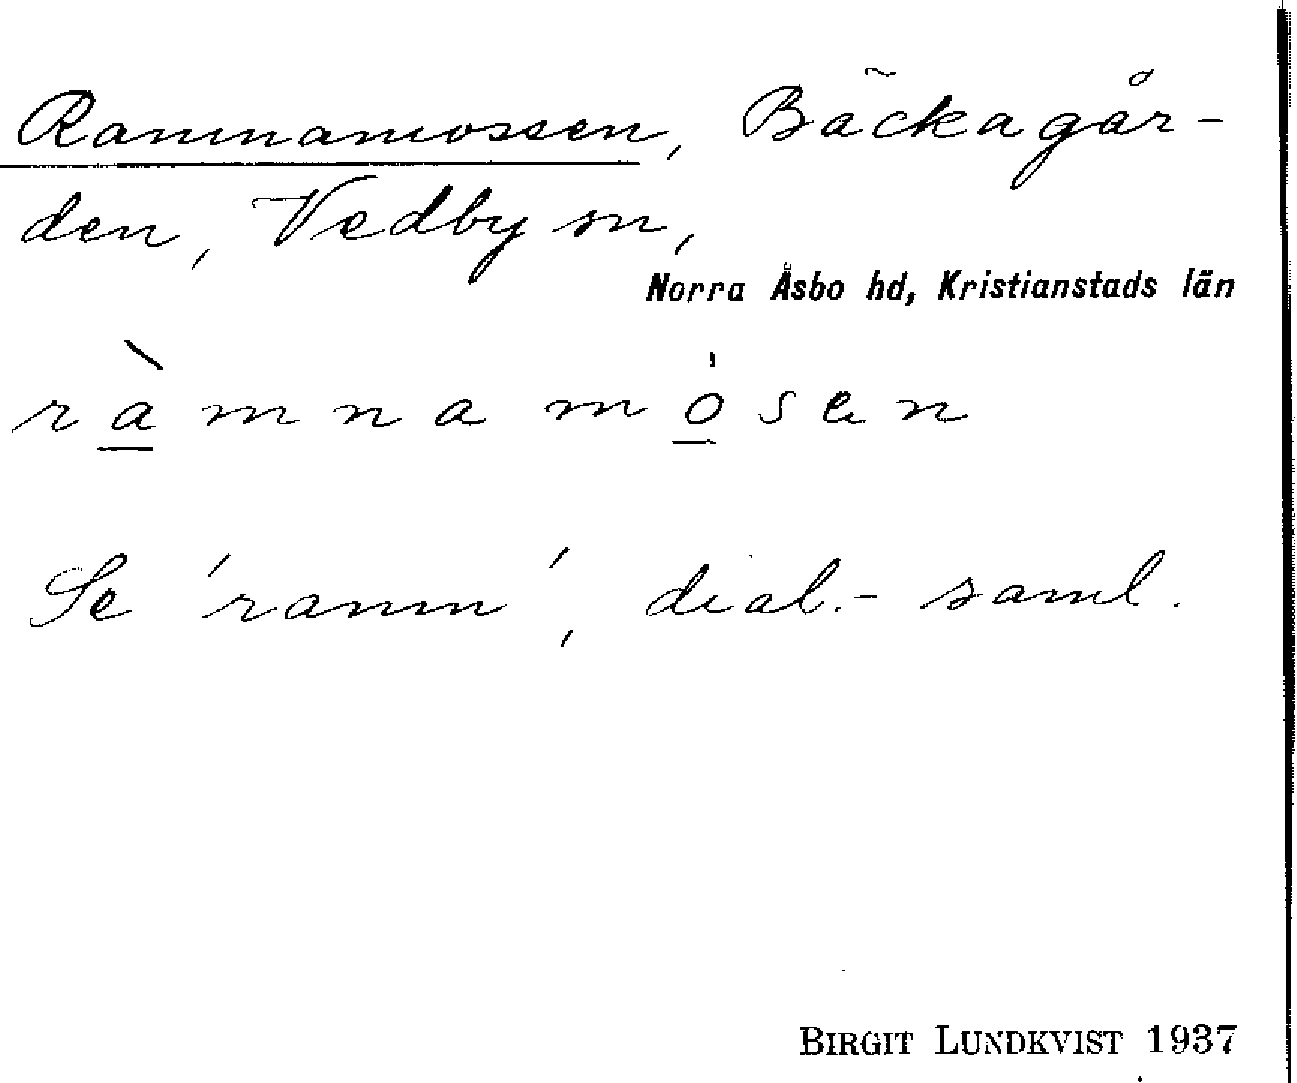 Ramnamossen, Bäckagår-
den, Vedby sn,
Norra Åsbo hd, Kristianstads län
ràmnamósen
Se 'ramn', dial.-saml.
BIRGIT LUNDKVIST 1937